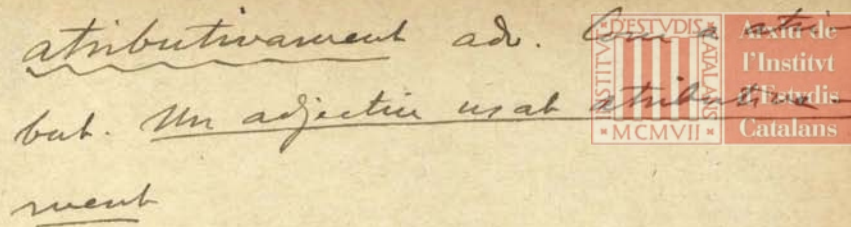 atributivament adv. Com a atri-
but. Un adjectiu usat atributiva-
ment
INSTITVT D'ESTVDIS CATALANS
MCMVII
Arxiu de
l'Institvt
d'Estvdis
Catalans